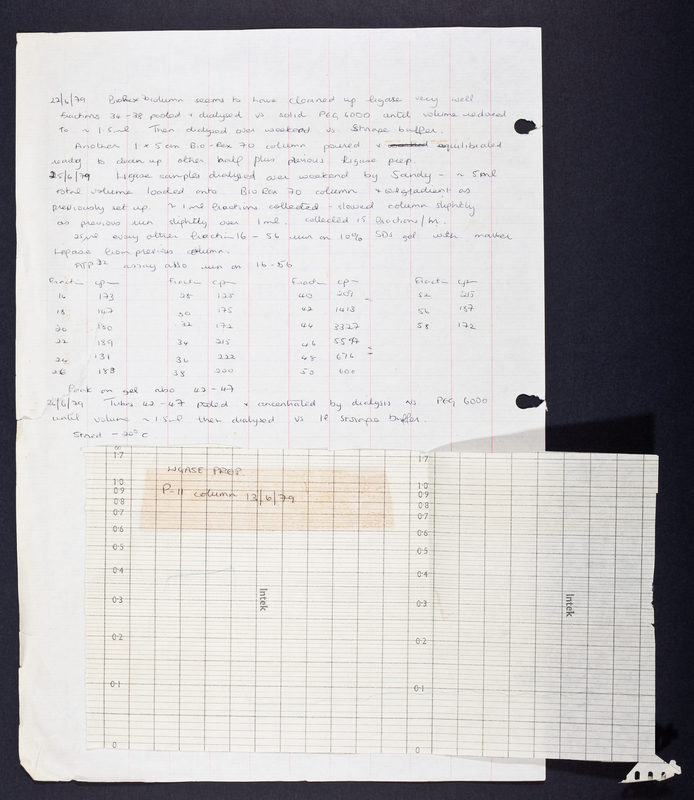 22/6/79 BioRex column seems to have cleaned up ligase very well
fractions 34-38 pooled + dialysed vs solid PEG 6000 until volume reduced
to ~ 1.5ml Then dialysed over weekend vs. Storage buffer.
Another 1 x 5 cm Bio-Rex 70 column poured + equilibrated
ready to clean up other half plus previous ligase prep.
25/6/79 Ligase samples dialysed over weekend by Sandy - ~ 5ml
total volume loaded onto BioRex 70 column + gradient as
previously set up. ~ 1ml fractions collected - slowed column slightly
as previous run slightly over 1ml. collected 15 fractions/hr.
25µl every other fraction 16 - 56 run on 10% SDS gel with marker
Ligase from previous column.
ATP 32 assay also run on 16-56
Fraction cpm Fraction cpm Fraction cpm Fraction cpm
16 173 28 125 40 209 52 215
18 147 30 175 42 1413 56 137
20 180 32 172 44 3327 58 172
22 189 34 215 46 5547
24 131 36 222 48 676
26 188 38 200 50 600
Peak on gel also 42-47
26/6/79 Tubes 42-47 pooled + concentrated by dialysis vs PEG 6000
until volume ~1.5ml then dialysed vs 1l storage buffer.
Stored -20°C
∞
1.7 1.7
LIGASE PREP.
P-11 column 13/6/79
1.0 1.0
0.9 0.9
0.8 0.8
0.7 0.7
0.6 0.6
0.5 0.5
0.4 0.4
Intek Intek
0.3 0.3
0.2 0.2
0.1 0.1
0 0